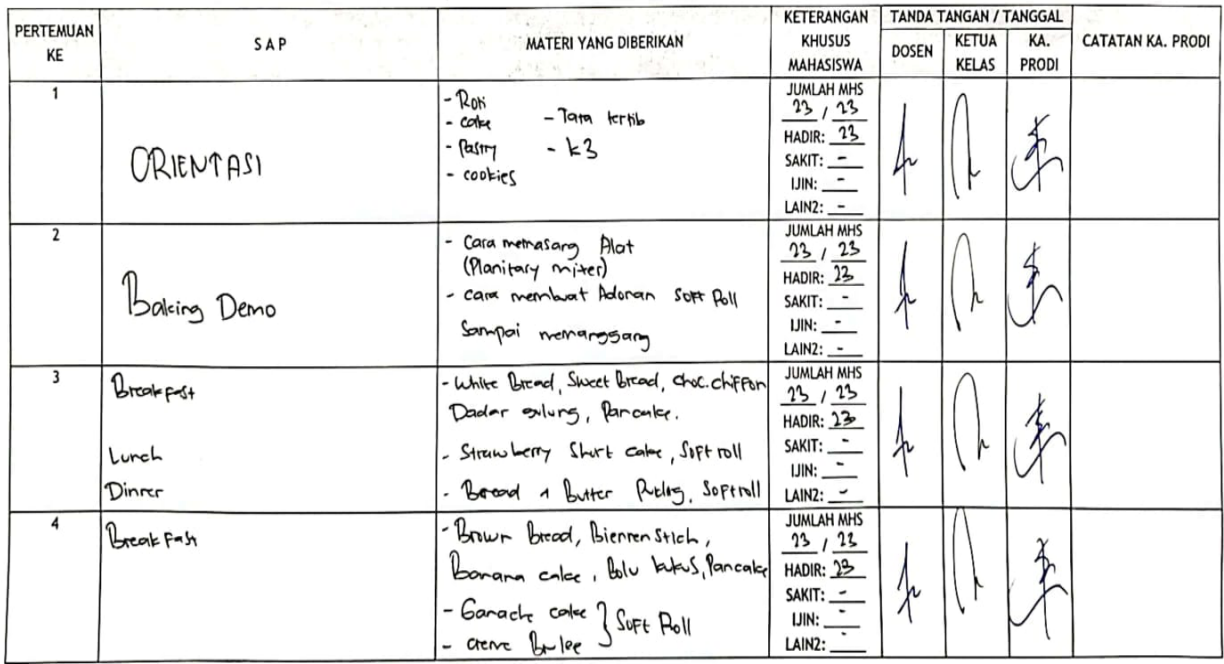 PERTEMUAN KE
SAP
MATERI YANG DIBERIKAN
KETERANGAN KHUSUS MAHASISWA
TANDA TANGAN / TANGGAL
DOSEN
KETUA KELAS
KA. PRODI
CATATAN KA. PRODI
1
ORIENTASI
- Roti
- cake
- Pastry
- cookies
- Tata tertib
- k3
JUMLAH MHS
23 / 23
HADIR: 23
SAKIT: -
IJIN: -
LAIN2: -
2
Baking Demo
- Cara memasang Alat
(Planitary mixer)
- cara membuat Adonan Soft Roll
Sampai memanggang
JUMLAH MHS
23 / 23
HADIR: 23
SAKIT: -
IJIN: -
LAIN2: -
3
Breakfast
Lunch
Dinner
- White Bread, Sweet Bread, choc.chiffon
Dadar gulung, Pancake.
- Strawberry Short cake, Soft roll
- Bread & Butter Puding, Softroll
JUMLAH MHS
23 / 23
HADIR: 23
SAKIT: -
IJIN: -
LAIN2: -
4
Breakfast
- Brown Bread, Bienenstich,
Banana cake, Bolu kukus, Pancake
- Ganache cake } Soft Roll
- creme Brulee
JUMLAH MHS
23 / 23
HADIR: 23
SAKIT: -
IJIN: -
LAIN2: -